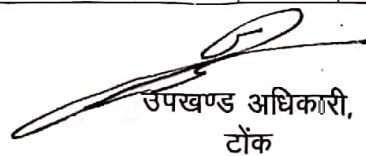 उपखण्ड अधिकारी,
टोंक